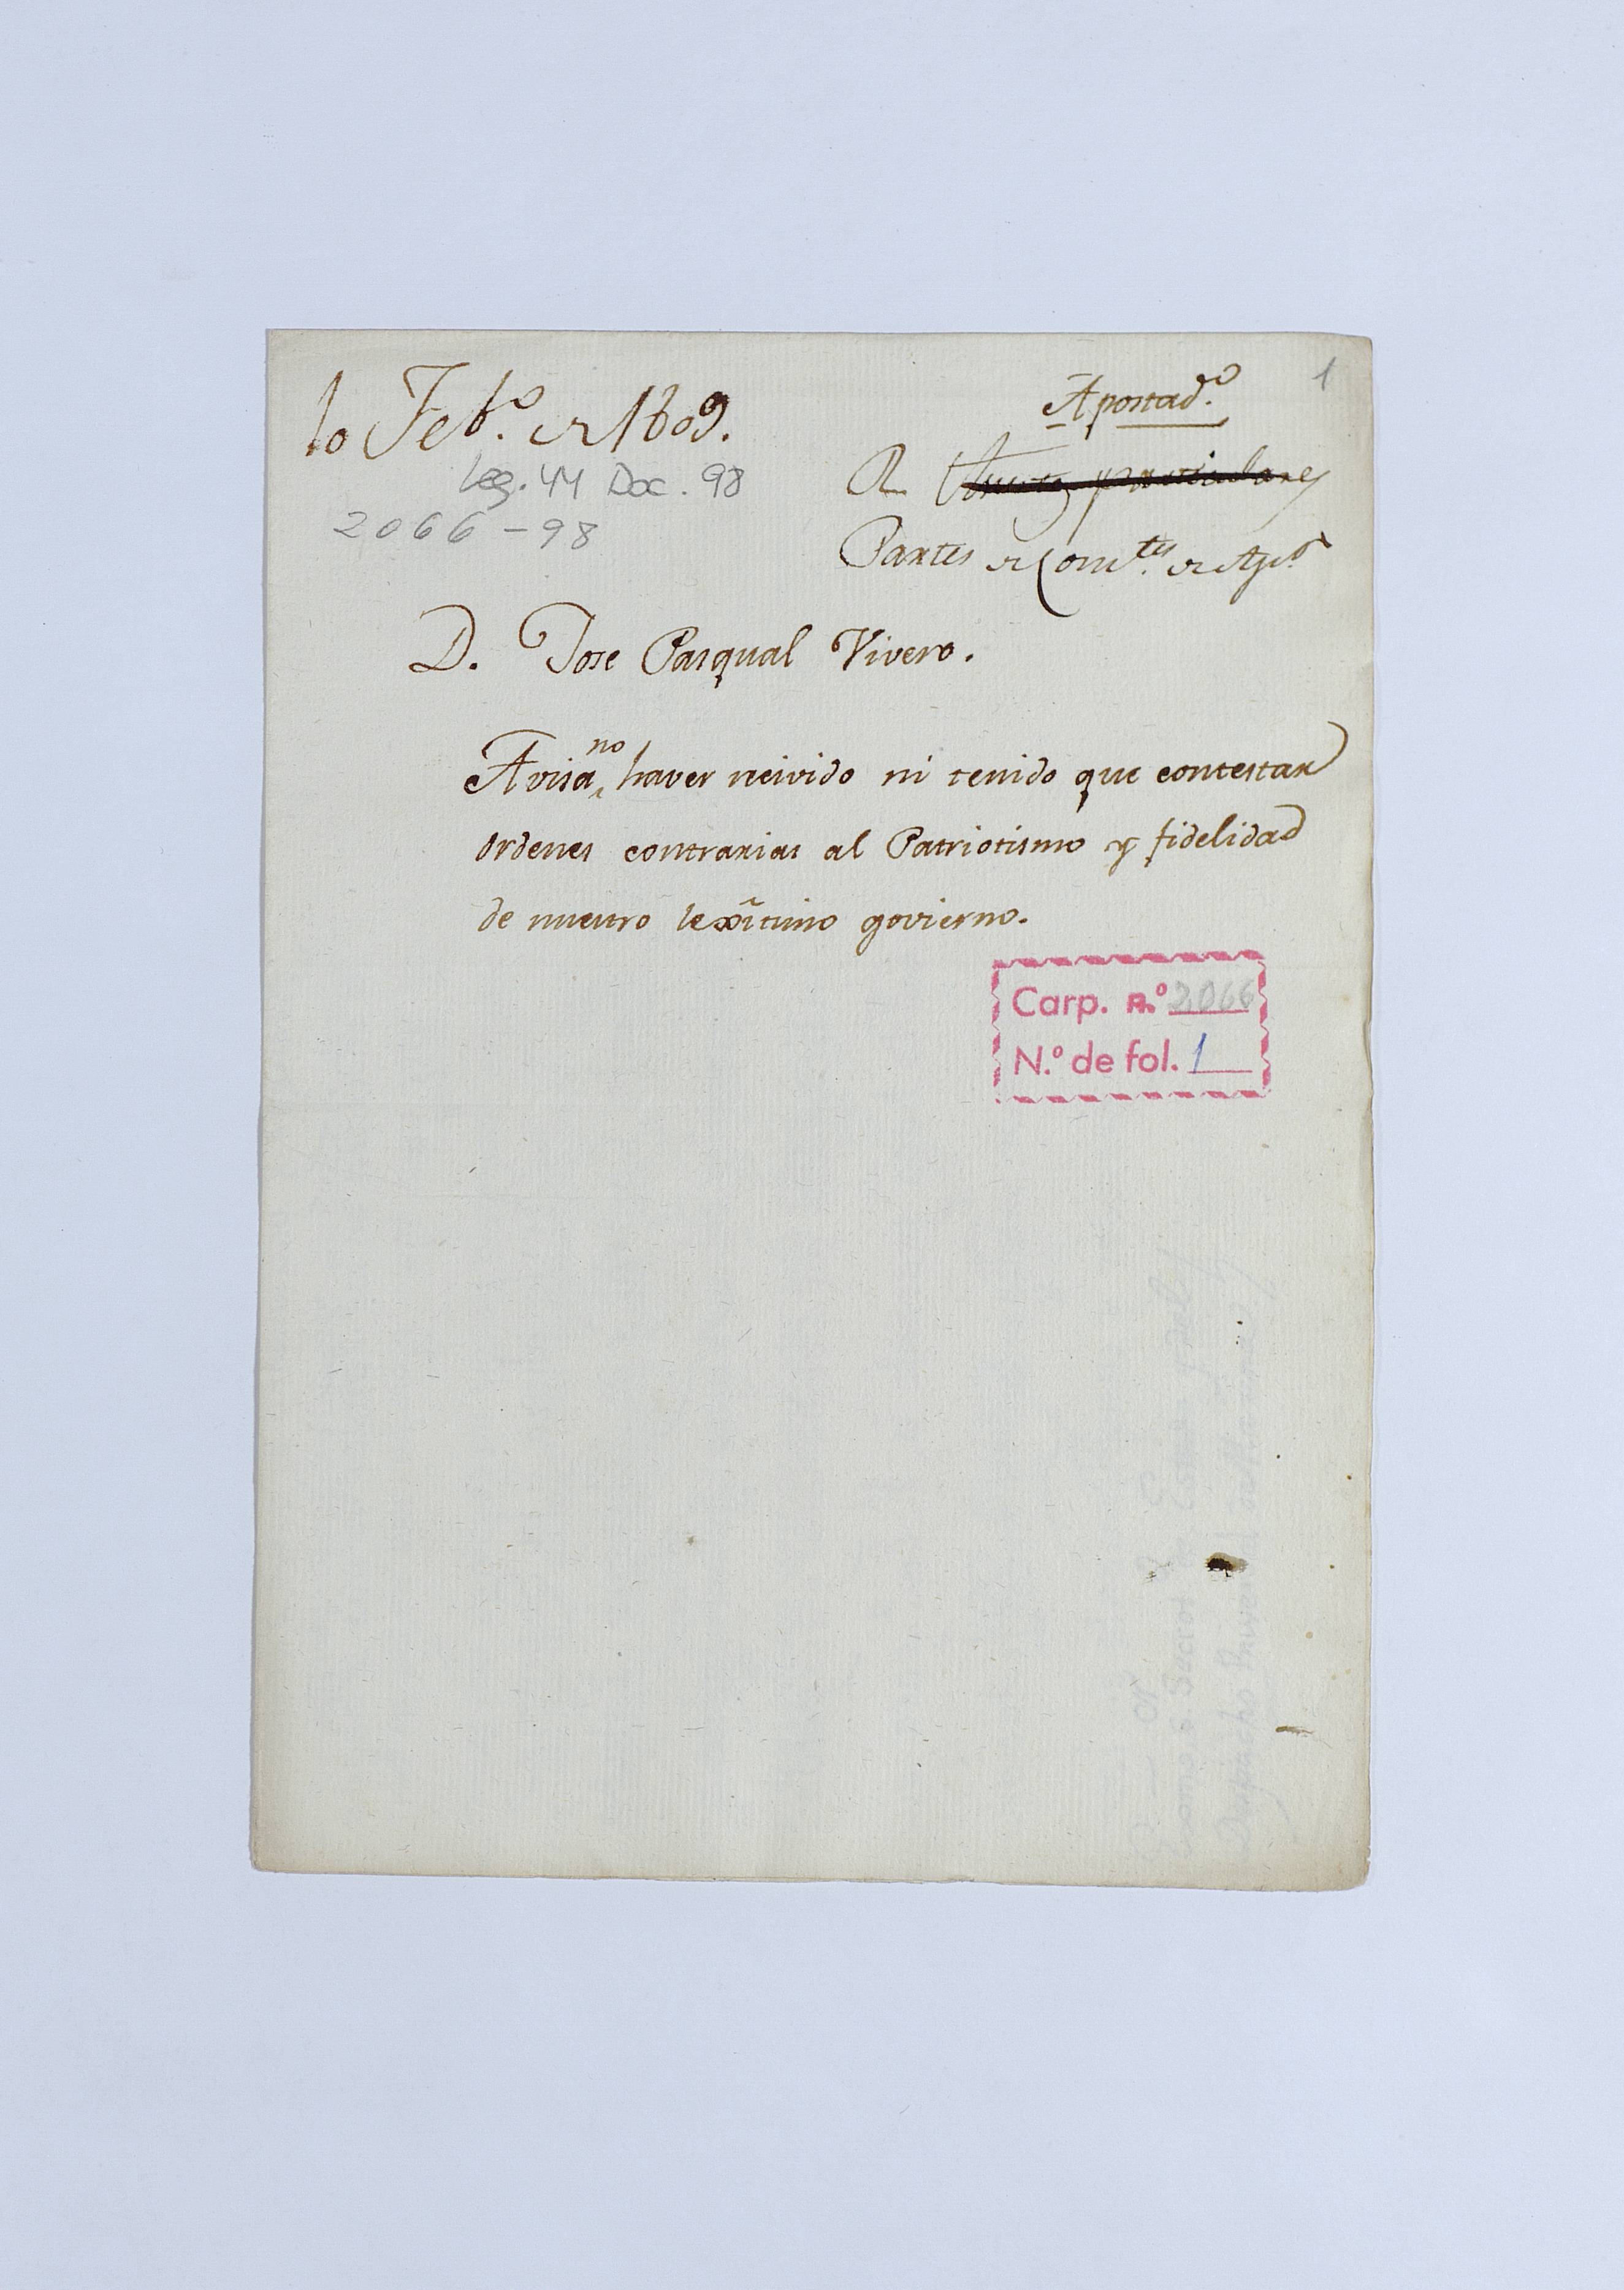 10 Feb.º de 1809.
Apostad.º
1
Leg. 44 Doc. 98
2066-98
R. particulares
Partes de Com.tes de Ap.s
D. Jose Pasqual Vivero.
Avisa no haver recivido ni tenido que contestar
ordenes contrarias al Patriotismo y fidelidad
de nuestro lexitimo govierno.
Carp. n.º 2066
N.º de fol. 1